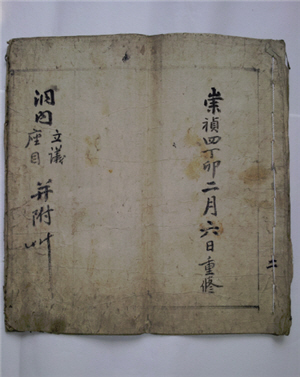 崇禎四丁卯二月六日重修
二
洞內
立議
座目
并附